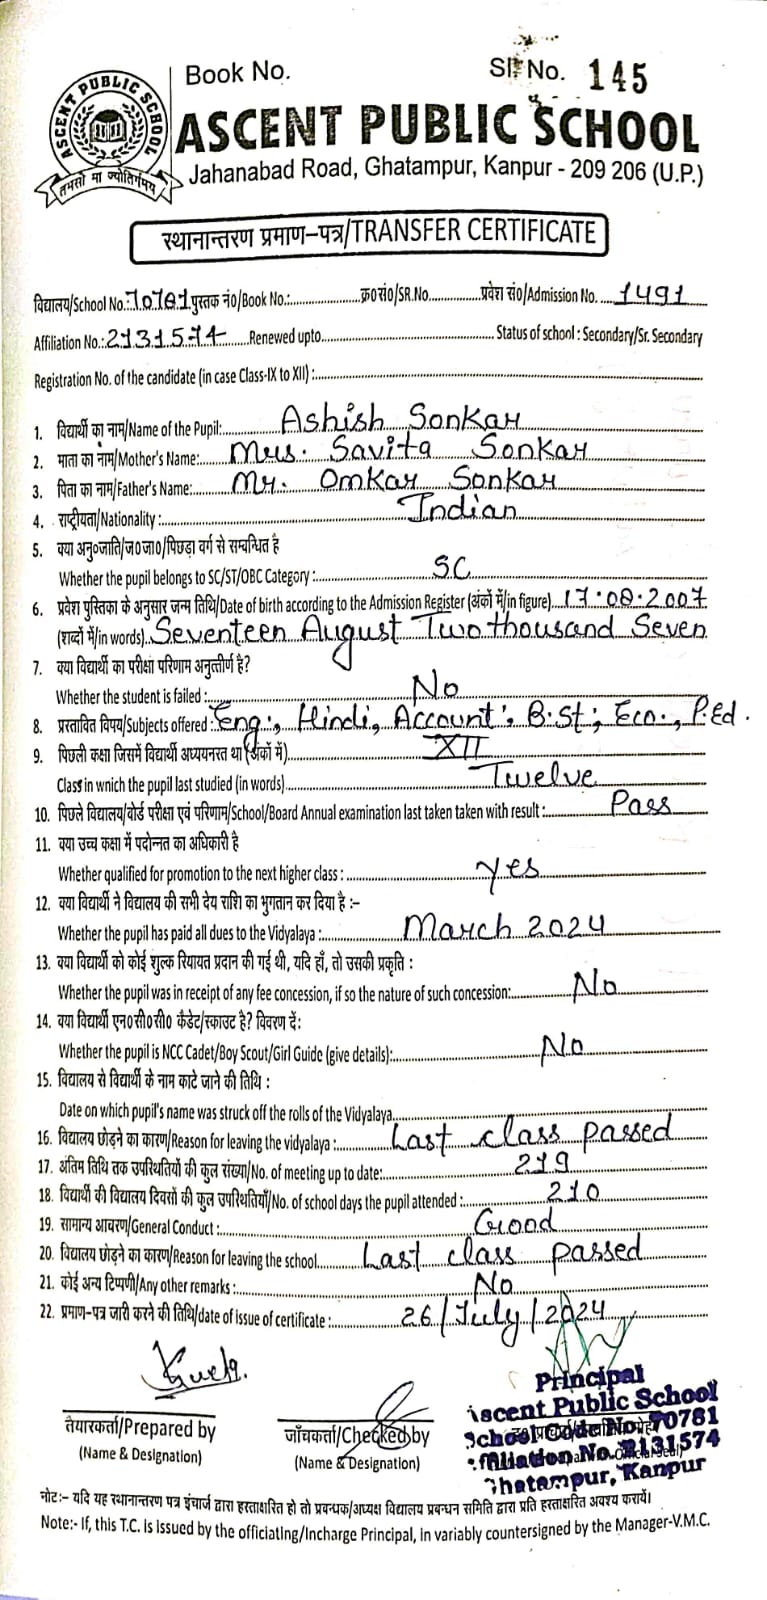 Book No.
Sl. No. 145
ASCENT PUBLIC SCHOOL
तमसो मा ज्योतिर्गमय
ASCENT PUBLIC SCHOOL
Jahanabad Road, Ghatampur, Kanpur - 209 206 (U.P.)
स्थानान्तरण प्रमाण-पत्र/TRANSFER CERTIFICATE
विद्यालय/School No.: 70781 पुस्तक नं0/Book No.:.......... क्र0सं0/SR.No.......... प्रवेश सं0/Admission No. .... 1491
Affiliation No.: 2131574 ...... Renewed upto.......... Status of school : Secondary/Sr. Secondary
Registration No. of the candidate (in case Class-IX to XII) :..........
1. विद्यार्थी का नाम/Name of the Pupil:...... Ashish Sonkar
2. माता का नाम/Mother's Name:...... Mrs. Savita Sonkar
3. पिता का नाम/Father's Name:...... Mr. Omkar Sonkar
4. राष्ट्रीयता/Nationality :...... Indian
5. क्या अनु०जाति/ज०जा०/पिछड़ा वर्ग से सम्बन्धित है
Whether the pupil belongs to SC/ST/OBC Category :...... SC
6. प्रवेश पुस्तिका के अनुसार जन्म तिथि/Date of birth according to the Admission Register (अंकों में/in figure).. 17.08.2007
(शब्दों में/in words). Seventeen August Two thousand Seven
7. क्या विद्यार्थी का परीक्षा परिणाम अनुत्तीर्ण है?
Whether the student is failed :...... No
8. प्रस्तावित विषय/Subjects offered : Eng:, Hindi, Account:, B.St; Eco., P.Ed.
9. पिछली कक्षा जिसमें विद्यार्थी अध्ययनरत था (अंकों में)...... XII
Class in wnich the pupil last studied (in words)...... Twelve
10. पिछले विद्यालय/बोर्ड परीक्षा एवं परिणाम/School/Board Annual examination last taken taken with result :...... Pass
11. क्या उच्च कक्षा में पदोन्नत का अधिकारी है
Whether qualified for promotion to the next higher class :...... yes
12. क्या विद्यार्थी ने विद्यालय की सभी देय राशि का भुगतान कर दिया है :-
Whether the pupil has paid all dues to the Vidyalaya :...... March 2024
13. क्या विद्यार्थी को कोई शुल्क रियायत प्रदान की गई थी, यदि हाँ, तो उसकी प्रकृति :
Whether the pupil was in receipt of any fee concession, if so the nature of such concession:...... No
14. क्या विद्यार्थी एन0सी0सी0 कैडेट/स्काउट है? विवरण दें:
Whether the pupil is NCC Cadet/Boy Scout/Girl Guide (give details):...... No
15. विद्यालय से विद्यार्थी के नाम काटे जाने की तिथि :
Date on which pupil's name was struck off the rolls of the Vidyalaya..........
16. विद्यालय छोड़ने का कारण/Reason for leaving the vidyalaya :...... Last class passed
17. अंतिम तिथि तक उपस्थितियों की कुल संख्या/No. of meeting up to date:...... 219
18. विद्यार्थी की विद्यालय दिवसों की कुल उपस्थितियाँ/No. of school days the pupil attended :...... 210
19. सामान्य आचरण/General Conduct :...... Good
20. विद्यालय छोड़ने का कारण/Reason for leaving the school...... Last class passed
21. कोई अन्य टिप्पणी/Any other remarks :...... No
22. प्रमाण-पत्र जारी करने की तिथि/date of issue of certificate :...... 26/July/2024
तैयारकर्ता/Prepared by
(Name & Designation)
जाँचकर्ता/Checked by
(Name & Designation)
Principal
Ascent Public School
School Code No. 70781
Affiliation No. 2131574
Ghatampur, Kanpur
नोट:- यदि यह स्थानान्तरण पत्र इंचार्ज द्वारा हस्ताक्षरित हो तो प्रबन्धक/अध्यक्ष विद्यालय प्रबन्धन समिति द्वारा प्रति हस्ताक्षरित अवश्य करायें।
Note:- If, this T.C. is issued by the officiating/Incharge Principal, In variably countersigned by the Manager-V.M.C.